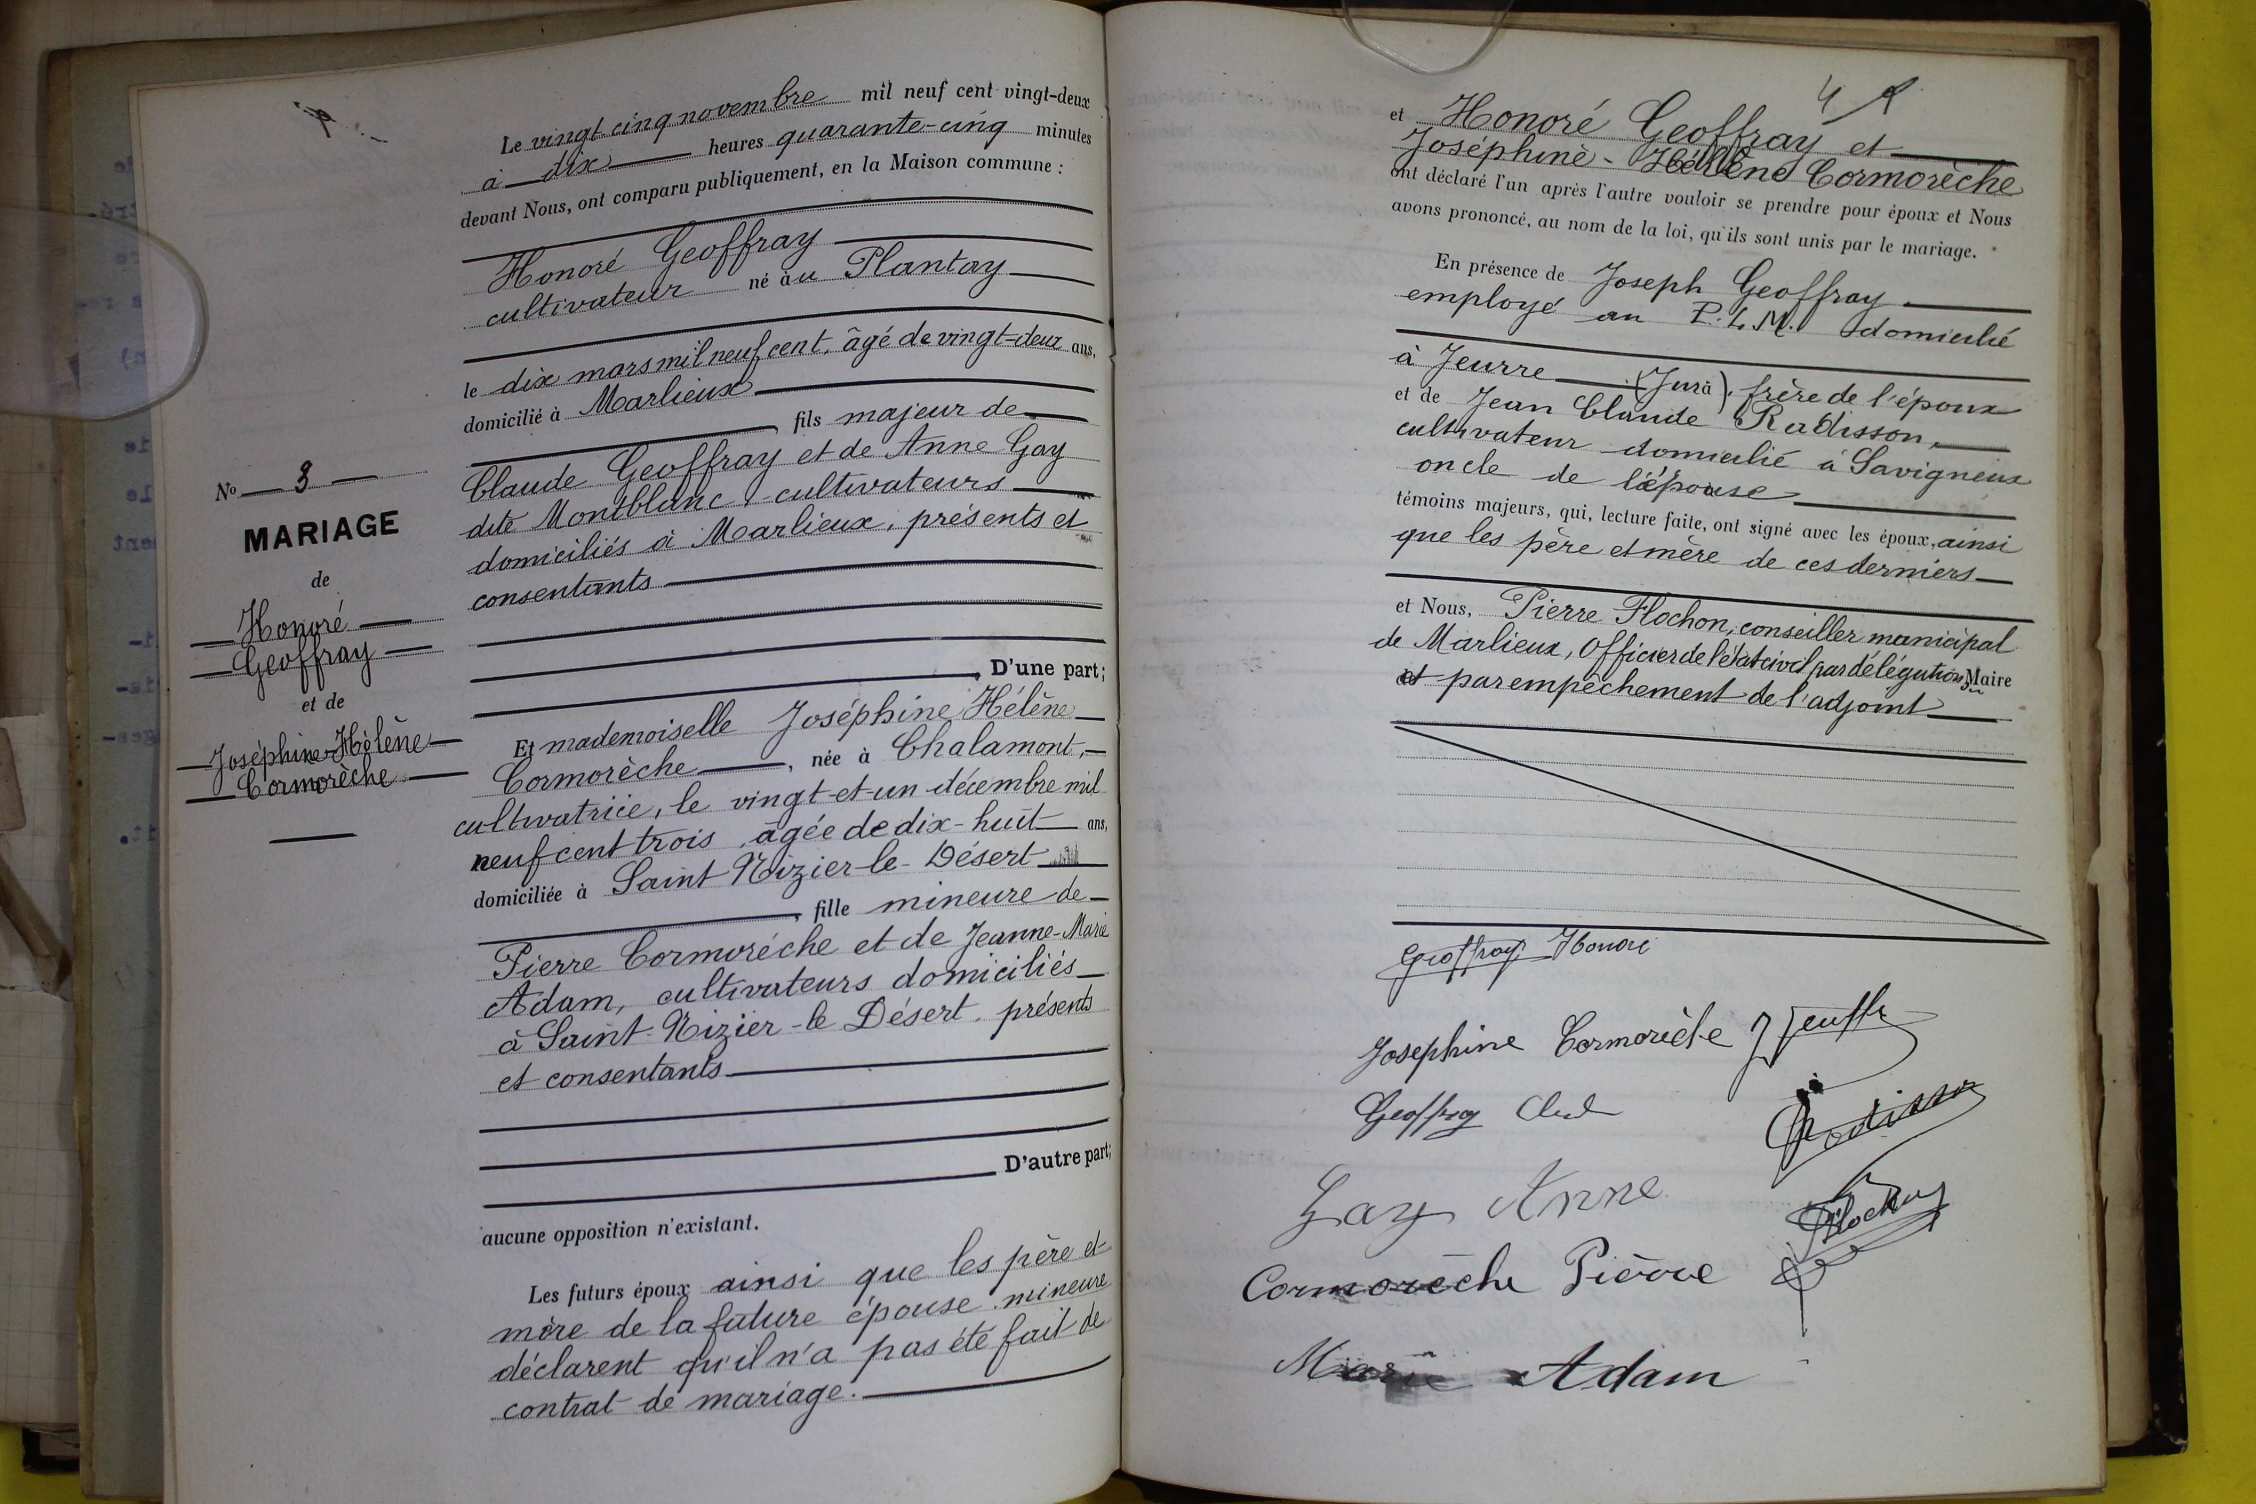 Le vingt cinq novembre mil neuf cent vingt-deux
à dix heures quarante-cinq minutes
devant Nous, ont comparu publiquement, en la Maison commune :
Honoré Geoffray
cultivateur né au Plantay
le dix mars mil neuf cent, âgé de vingt-deux ans,
domicilié à Marlieux
, fils majeur de
Claude Geoffray et de Anne Gay
dite Montblanc, cultivateurs
domiciliés à Marlieux, présents et
consentants
, D'une part;
No 3
MARIAGE
de
Honoré
Geoffray
et de
Joséphine-Hélène
Cormorèche
Et mademoiselle Joséphine Hélène
Cormorèche, née à Chalamont,
cultivatrice, le vingt-et-un décembre mil
neuf cent trois, âgée de dix-huit ans,
domiciliée à Saint Nizier-le-Désert
, fille mineure de
Pierre Cormoréche et de Jeanne-Marie
Adam, cultivateurs domiciliés
à Saint-Nizier-le Désert, présents
et consentants
D'autre part;
aucune opposition n'existant.
Les futurs époux ainsi que les père et
mère de la future épouse mineure
déclarent qu'il n'a pas été fait de
contrat de mariage.
4
et Honoré Geoffray et
Joséphine-Hélène Cormorèche
ont déclaré l'un après l'autre vouloir se prendre pour époux et Nous
avons prononcé, au nom de la loi, qu'ils sont unis par le mariage.
En présence de Joseph Geoffray
employé au P.L.M. domicilié
à Jeurre (Jura), frère de l'époux
et de Jean Claude Radisson,
cultivateur domicilié à Savigneux
oncle de l'épouse
témoins majeurs, qui, lecture faite, ont signé avec les époux, ainsi
que les père et mère de ces derniers
et Nous, Pierre Flochon, conseiller municipal
de Marlieux, Officier de l'état civil par délégation Maire
et par empêchement de l'adjoint
Geoffray Honoré
Josephine Cormorèche
Geoffray
Radisson
Gay Anne
Flochon
Cormorèche Pièrre
Marie Adam